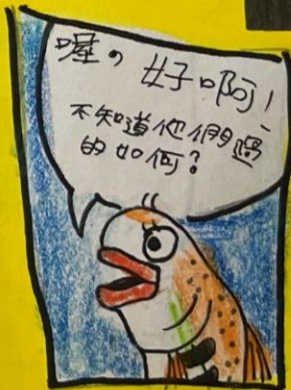 喔，好啊！
不知道他們過
的如何？